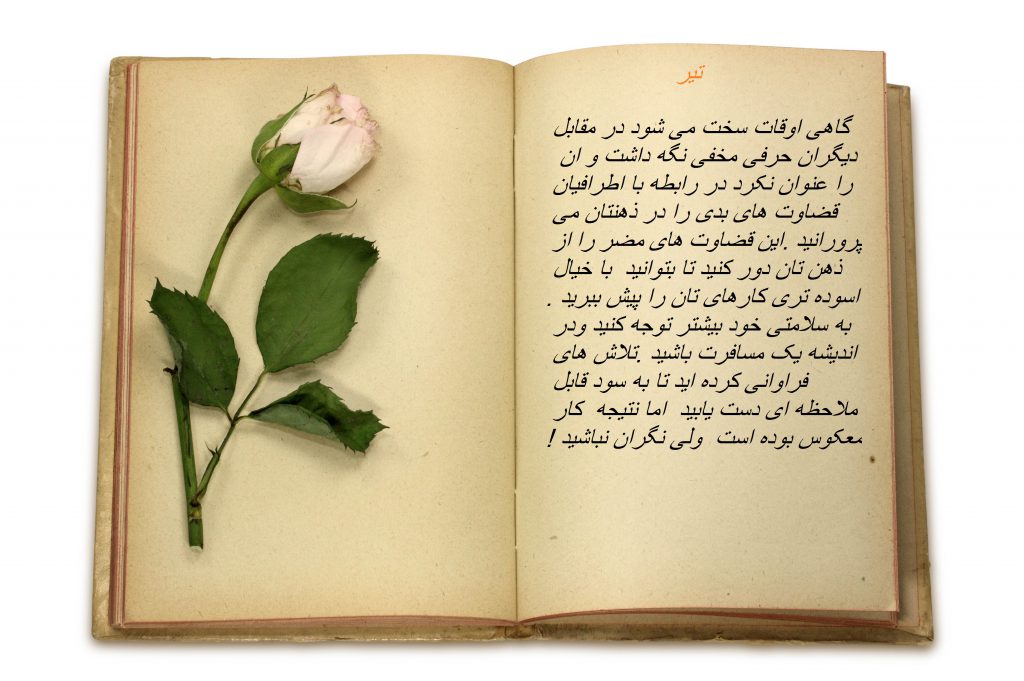 تیر
گاهی اوقات سخت می شود در مقابل
دیگران حرفی مخفی نگه داشت و ان
را عنوان نکرد در رابطه با اطرافیان
قضاوت های بدی را در ذهنتان می
پرورانید .این قضاوت های مضر را از
ذهن تان دور کنید تا بتوانید با خیال
اسوده تری کارهای تان را پیش ببرید .
به سلامتی خود بیشتر توجه کنید ودر
اندیشه یک مسافرت باشید .تلاش های
فراوانی کرده اید تا به سود قابل
ملاحظه ای دست یابید اما نتیجه کار
معکوس بوده است ولی نگران نباشید !